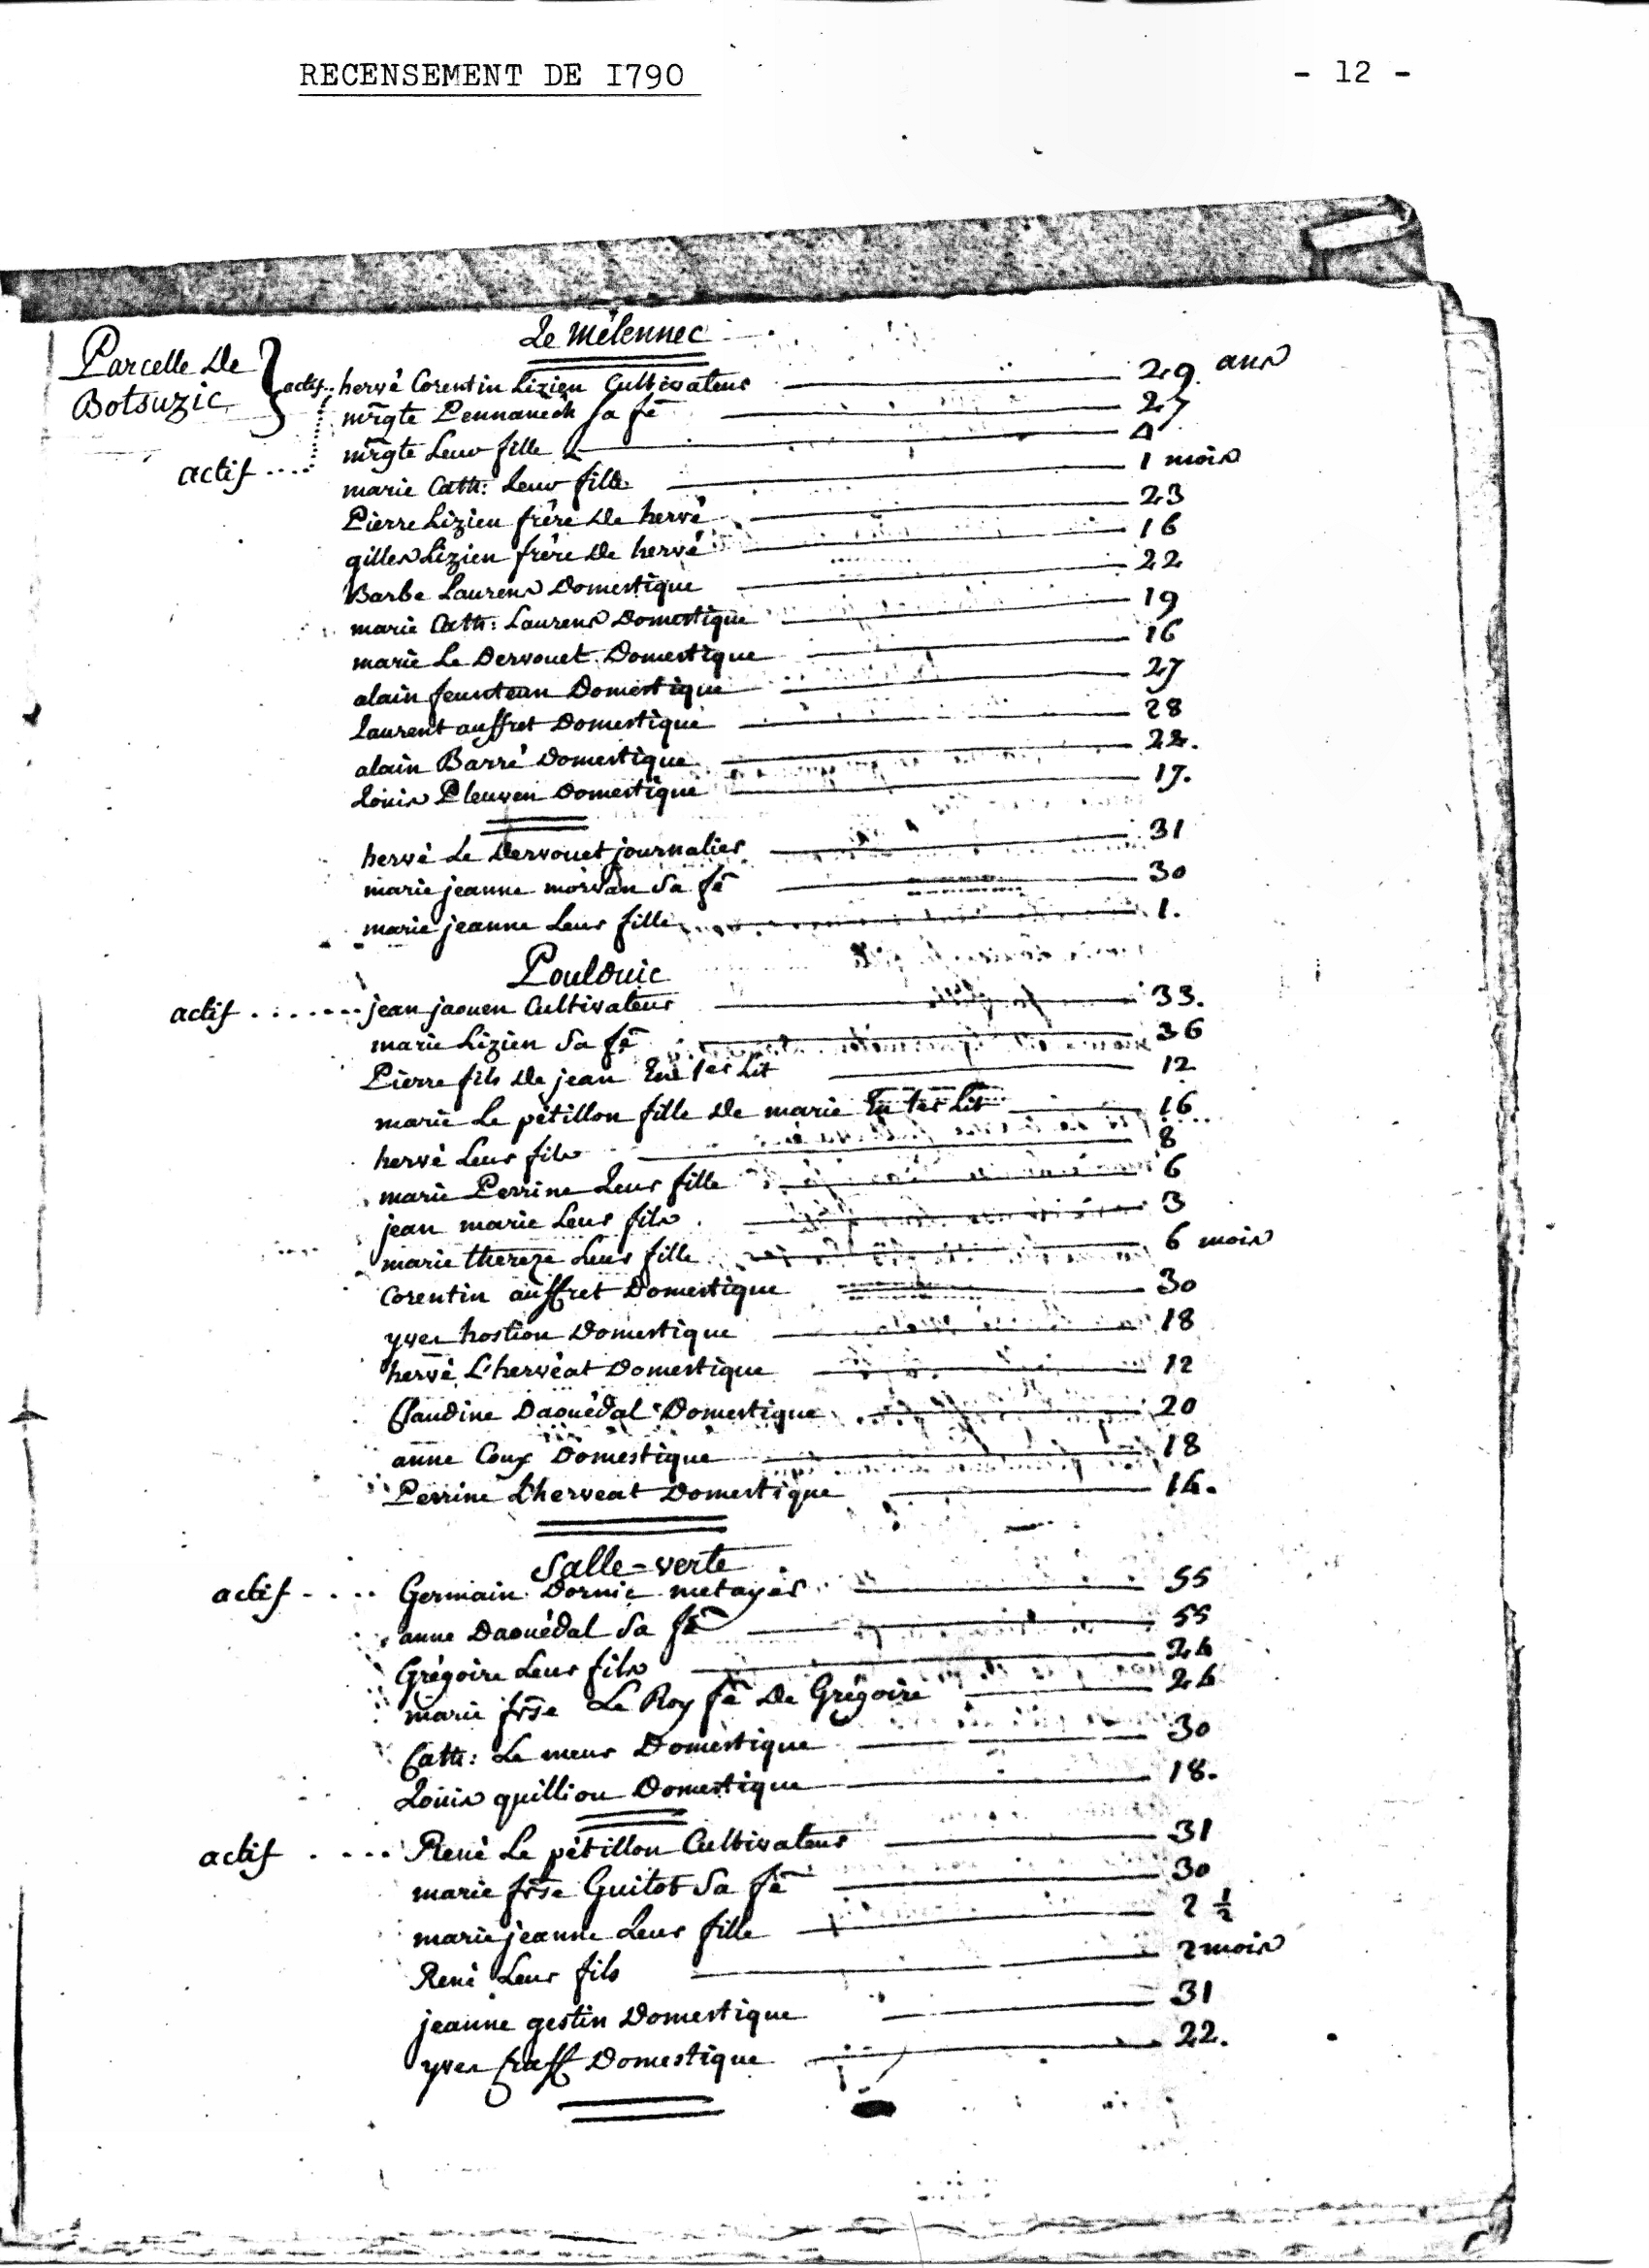 RECENSEMENT DE I790
- 12 -
Le Mélennec
Parcelle De
Botsuzic
actif.. hervé Corentin Lizien Cultivateur 29 ans
mrgte Pennanech sa fē 27
mrgte Leur fille 4
actif ....
marie Cath: Leur fille 1 mois
Pierre Lizien frère De hervé 23
gilles Lizien frère De hervé 16
Barbe Laurens Domestique 22
marie Cath: Laurens Domestique 19
marie Le Dervouet Domestique 16
alain feunteun Domestique 27
Laurent auffret Domestique 28
alain Barré Domestique
Louis Pleuven Domestique 17.
hervé Le Dervouet journalier 31
marie jeanne morvan Sa fē 30
marie jeanne Leur fille 1.
Poulduic
actif ....... jean jaouen Cultivateur 33.
marie Lizien Sa fē 36
Pierre fils De jean En 1er Lit 12
marie Le pétillon fille De marie En 1er Lit 16
hervé Leur fils 8
marie Perrine Leur fille 6
jean marie Leur fils 3
marie thereze Leur fille 6 mois
Corentin auffret Domestique 30
yves hostiou Domestique 18
hervé L'hervéat Domestique 12
Claudine Daouédal Domestique 20
anne Coux Domestique 18
Perrine L'herveat Domestique 14.
Salle-verte
actif .... Germain Dornic metayer 55
anne Daouédal Sa fē 55
Grégoire Leur fils 24
marie frse Le Roy fē De Grégoire 24
Cath: Le meur Domestique 30
Louis quilliou Domestique 18.
actif .... René Le pétillon Cultivateur 31
marie frse Guitot Sa fē 30
marie jeanne Leur fille 2 1/2
René Leur fils 2 mois
jeanne gestin Domestique 31
yves Domestique 22.